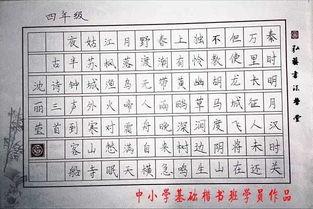 四年级
秦时明月汉时关
万里长征人未还
但使龙城飞将在
不教胡马度阴山
独怜幽草涧边生
上有黄鹂深树鸣
春潮带雨晚来急
野渡无人舟自横
月落乌啼霜满天
江枫渔火对愁眠
姑苏城外寒山寺
夜半钟声到客船
古诗三首
沈丽莹
弘藝書法學堂
中小学基础楷书班学员作品